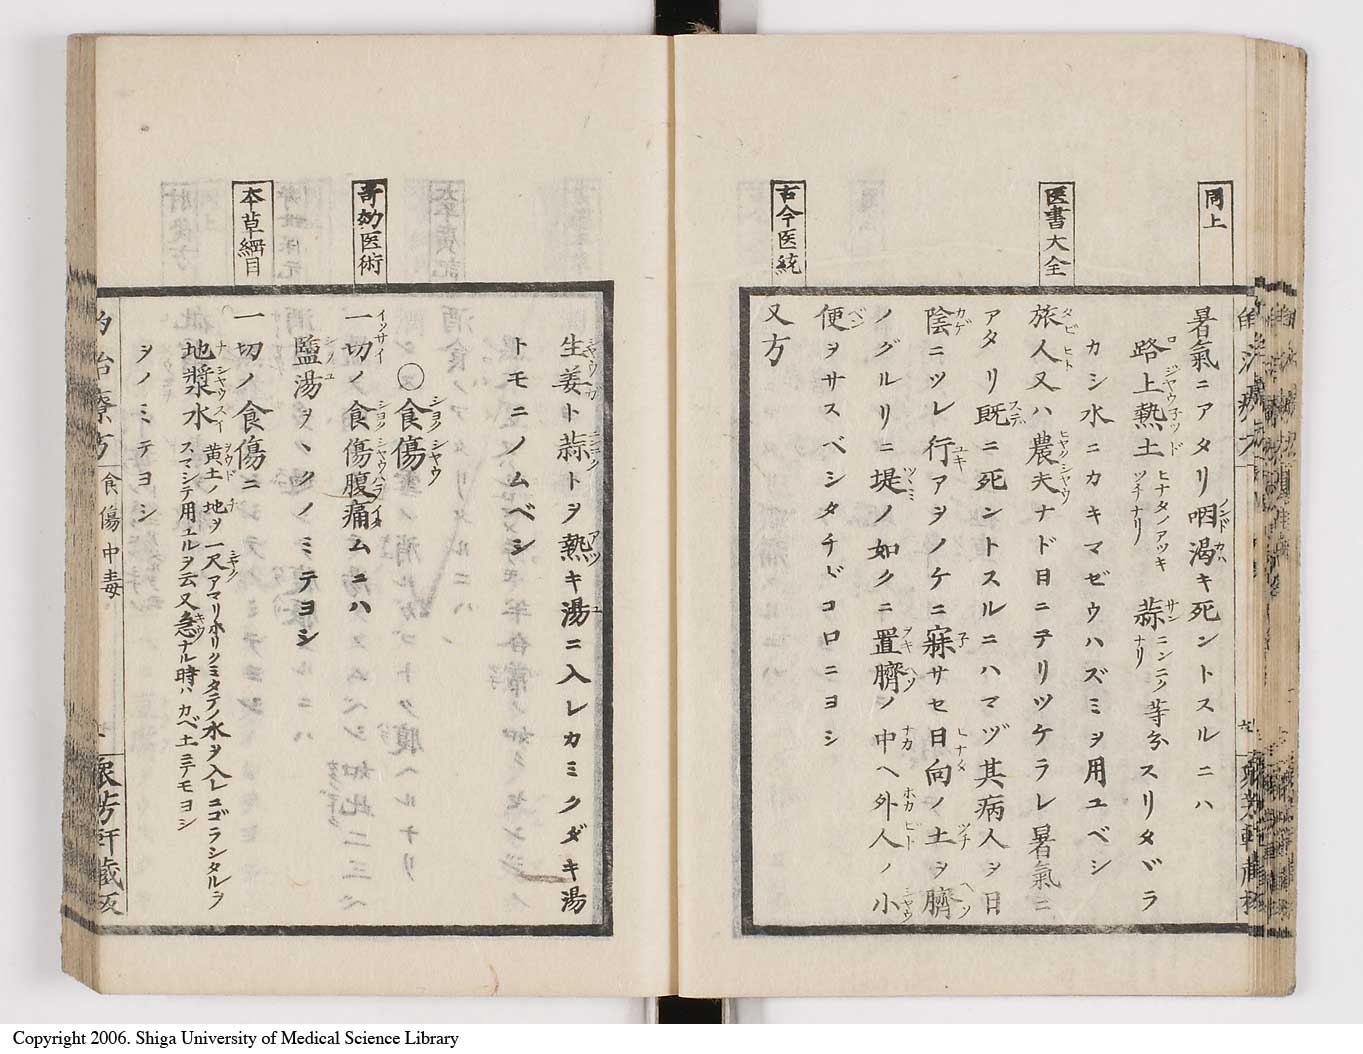 同上
暑氣ニアタリ咽渇キ死ントスルニハ
路上熱土ヒナタノアツキツチナリ 蒜ニンニクナリ 等分スリタヾラ
カシ水ニカキマゼウハズミヲ用ユベシ
医書大全
旅人又ハ農夫ナド日ニテリツケラレ暑氣ニ
アタリ既ニ死ントスルニハマヅ其病人ヲ日
陰ニツレ行アヲノケニ寐サセ日向ノ土ヲ臍
ノグルリニ堤ノ如クニ置臍ノ中ヘ外人ノ小
便ヲサスベシタチドコロニヨシ
古今医統
又方
生姜ト蒜トヲ熱キ湯ニ入レカミクダキ湯
トモニノムベシ
○食傷
奇効医術
一切ノ食傷腹痛ムニハ
鹽湯ヲヽクノミテヨシ
本草綱目
一切ノ食傷ニ
地漿水 黄土ノ地ヲ一尺アマリホリクミタテノ水ヲ入レコゴラシタルヲ
スマシテ用ユルヲ云又急ナル時ハカベ土ニテモヨシ
ヲノミテヨシ
食傷 中毒
Copyright 2006. Shiga University of Medical Science Library